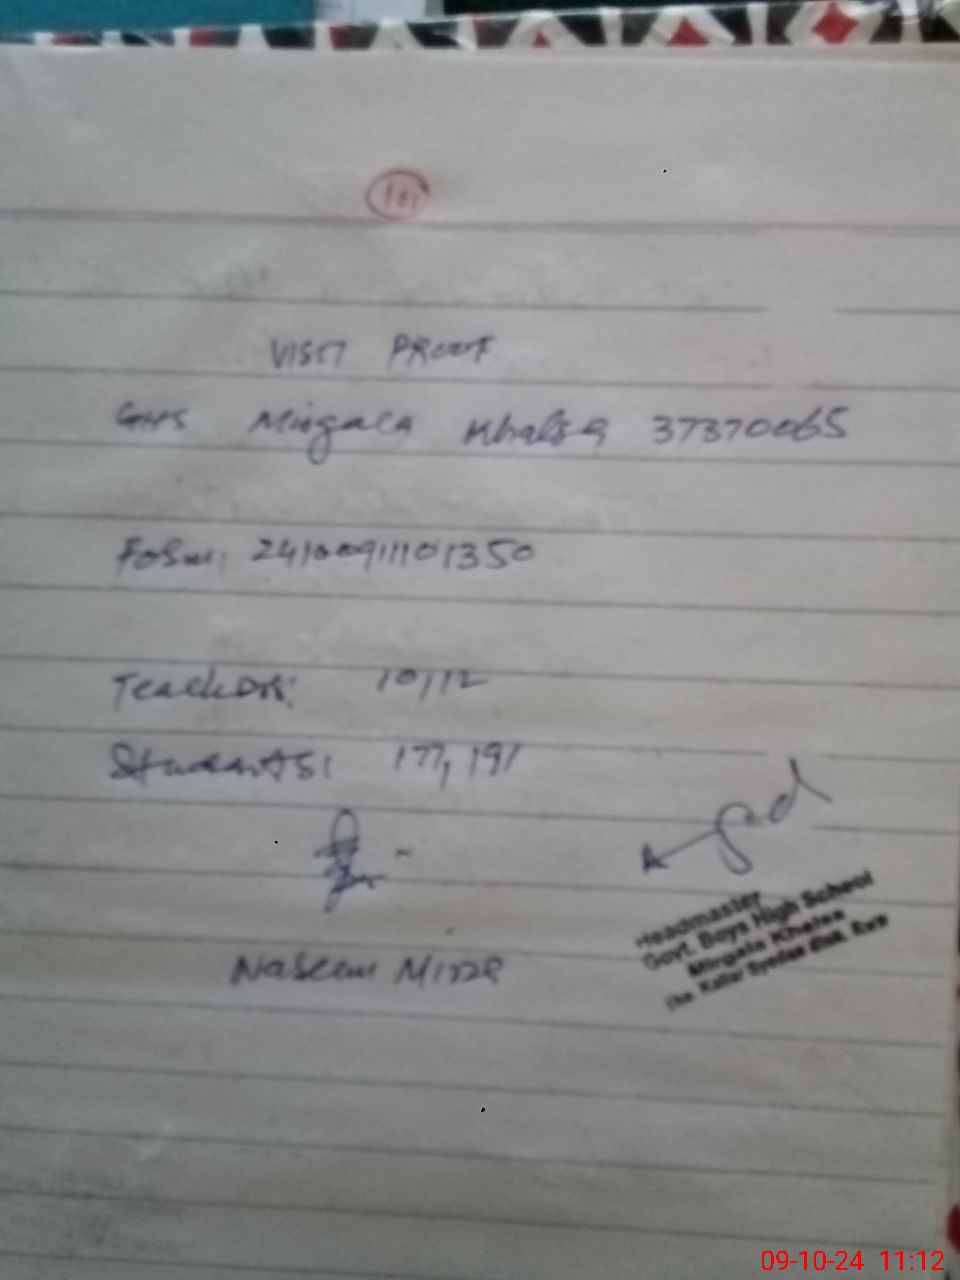 101
VISIT PROOF
GHS Mirgala Khalsa 37370065
Form: 24100911101350
Teachers: 10,12
Students: 177, 191
Naseem Mirza
Headmaster
Govt. Boys High School
Mirgala Khalsa
Kallar Syedan Distt. Rwp
09-10-24 11:12